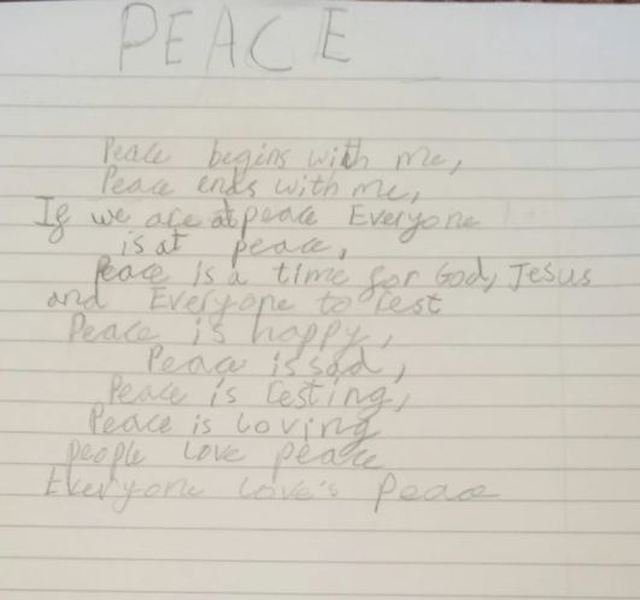 PEACE
Peace begins with me,
Peace ends with me,
If we are at peace Everyone
is at peace,
Peace is a time for God, Jesus
and Everyone to rest
Peace is happy,
Peace is sad,
Peace is resting,
Peace is loving
people love peace
Everyone love's Peace